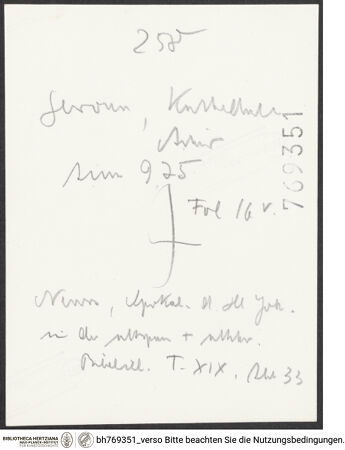 255
Gerona, Kathedrale
Archiv
num 9.25
Fol 16 v.
769351
Neuss, Apokal. d. hl. Joh.
in der altspan + altchr.
T. XIX, Abb 33
BIBLIOTHECA HERTZIANA
MAX-PLANCK-INSTITUT
FÜR KUNSTGESCHICHTE
bh769351_verso Bitte beachten Sie die Nutzungsbedingungen.